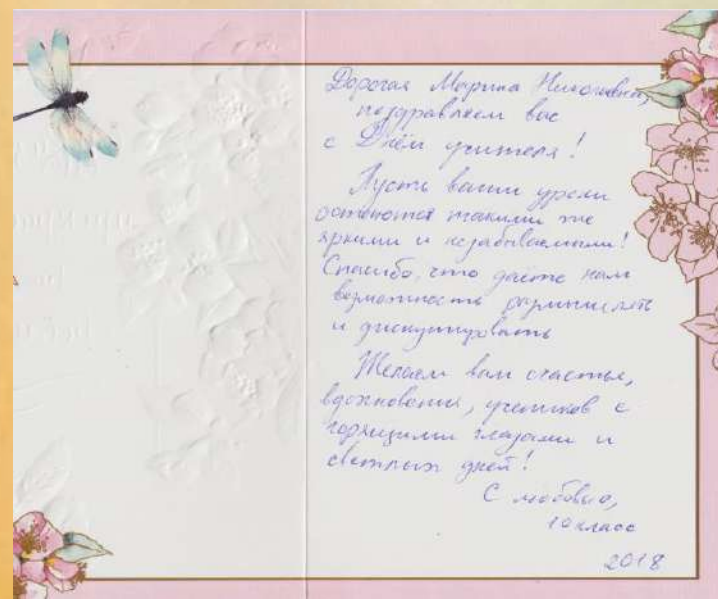 Дорогая Марина Николаевна,
поздравляем вас
с Днём учителя!
Пусть ваши уроки
остаются такими же
яркими и незабываемыми!
Спасибо, что даёте нам
возможность размышлять
и дискутировать
Желаем вам счастья,
вдохновения, учеников с
горящими глазами и
светлых дней!
С любовью,
10 класс
2018